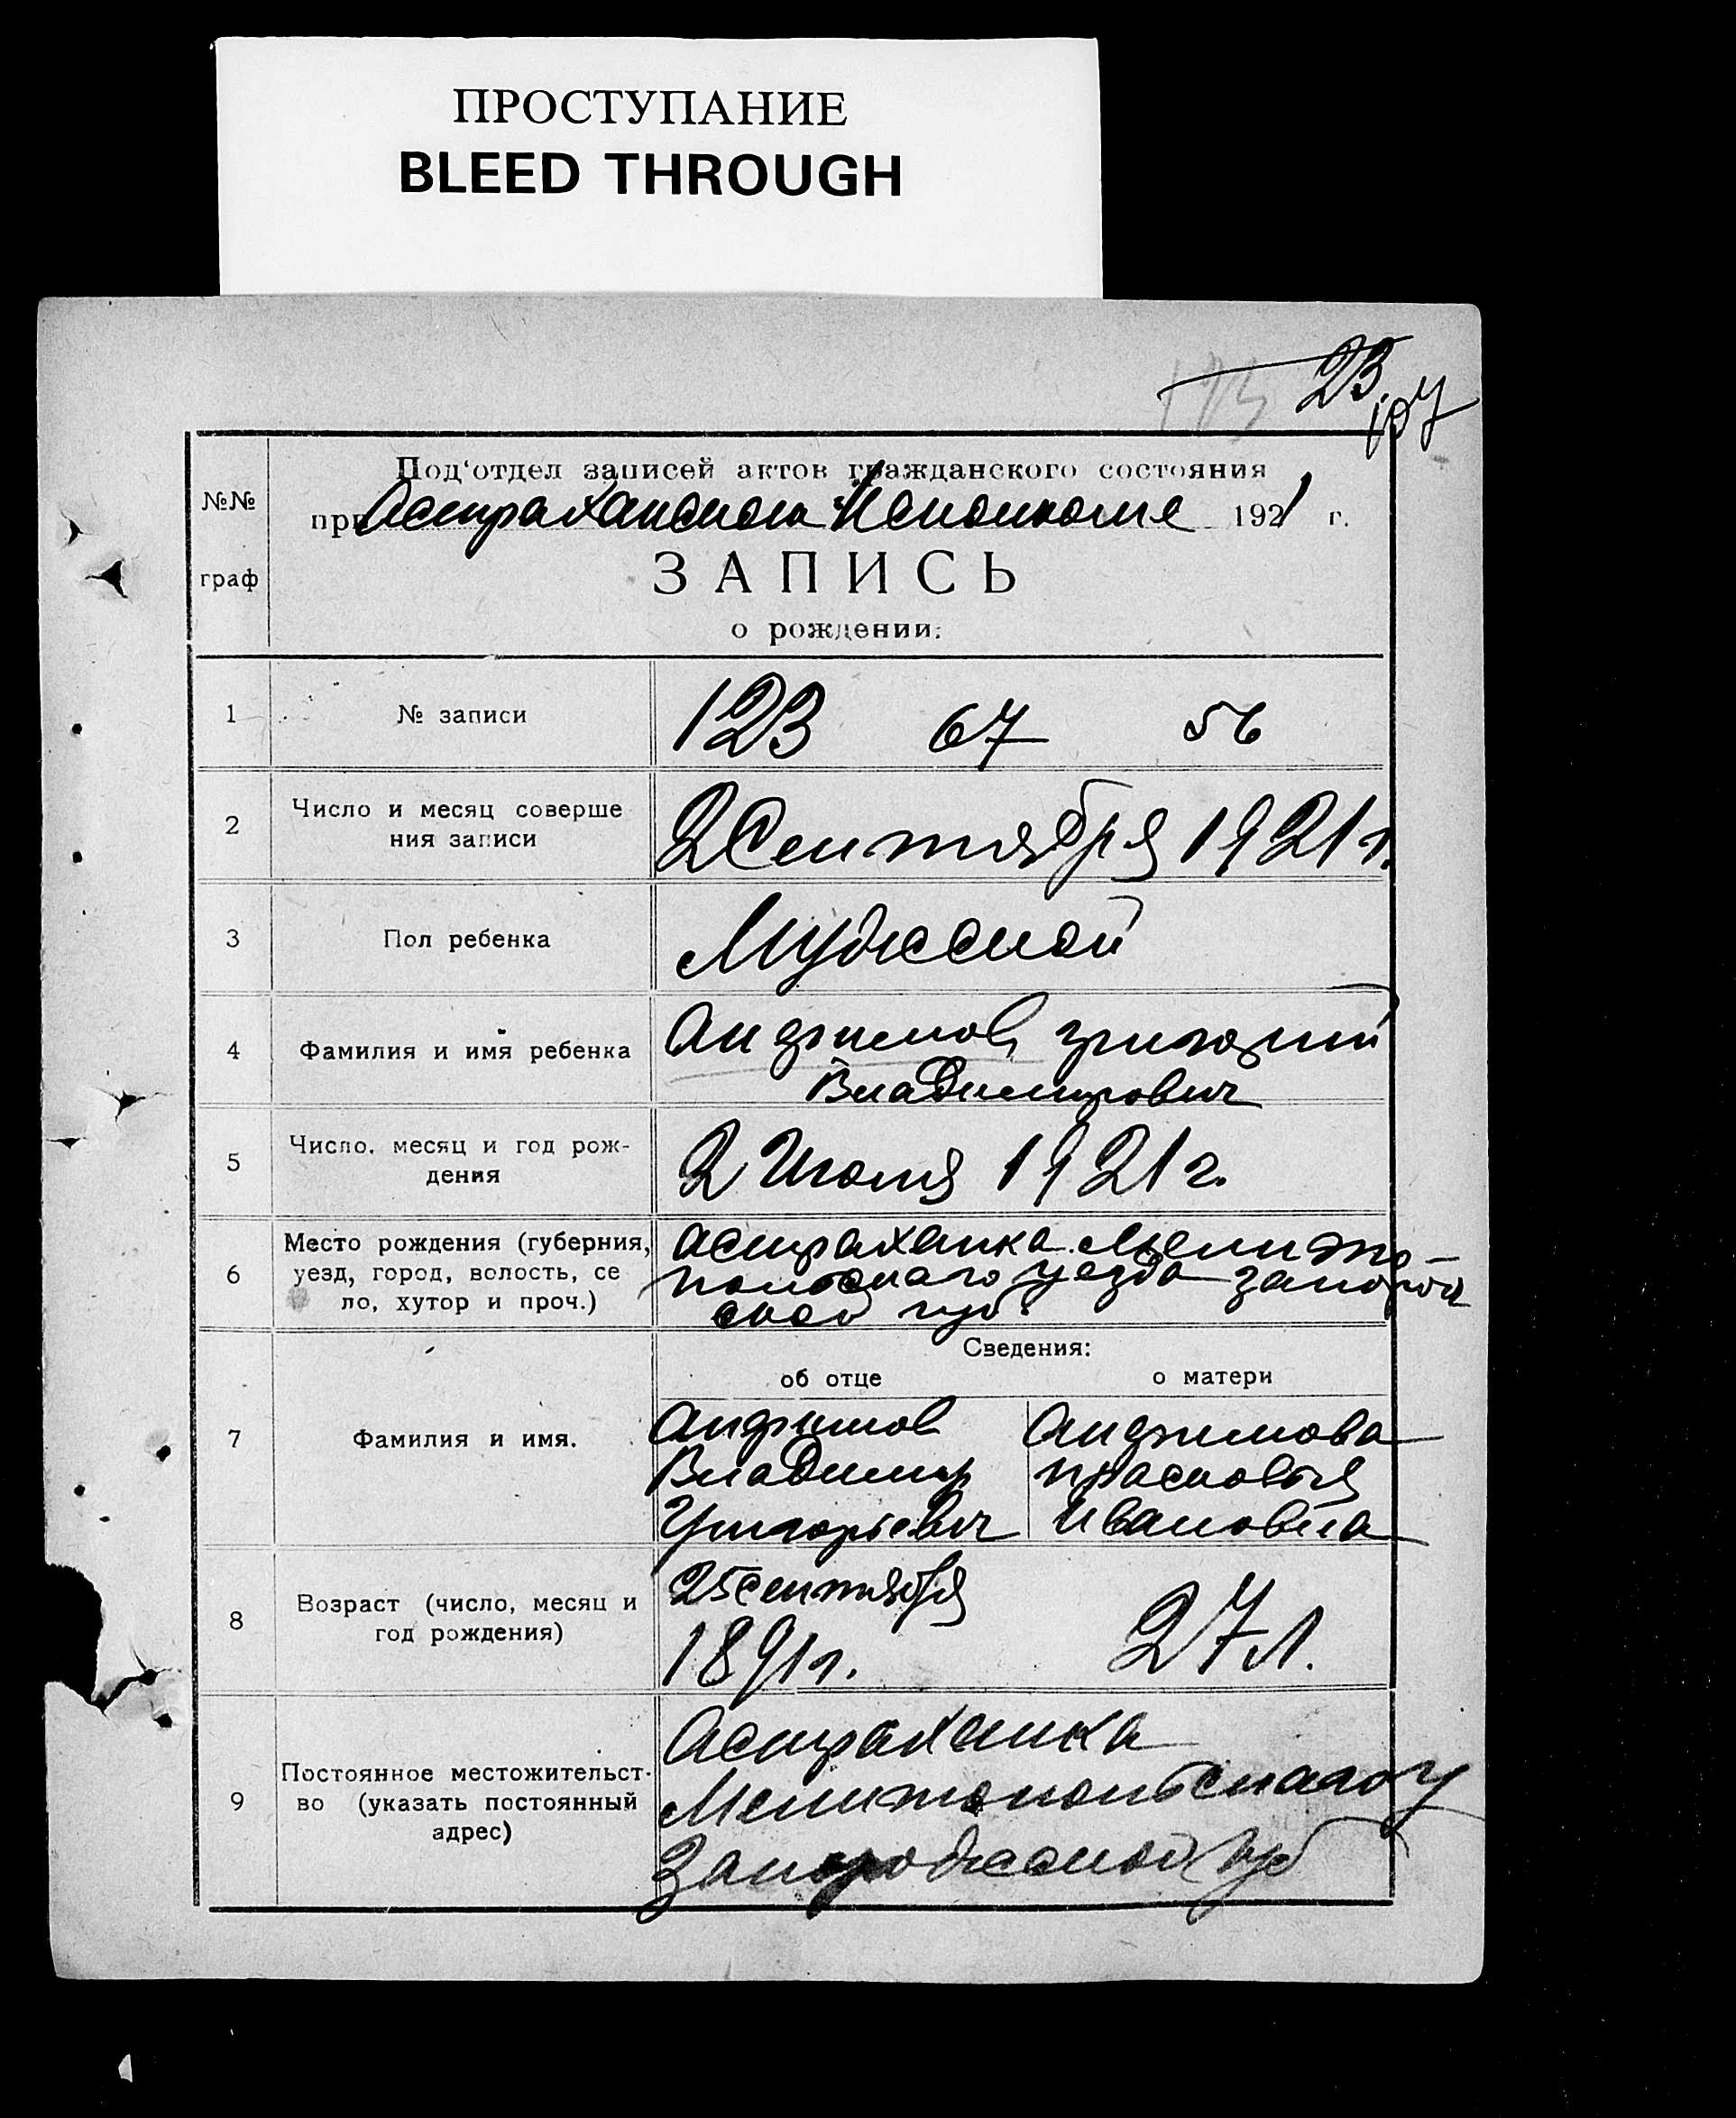 ПРОСТУПАНИЕ
BLEED THROUGH
123 23.
107
Под'отдел записей актов гражданского состояния
№№ при Астраханском Исполкоме 1921 г.
граф ЗАПИСЬ
о рождении:
1 № записи 123 67 56
2 Число и месяц соверше
ния записи 2 Сентября 1921 г.
3 Пол ребенка Мужской
4 Фамилия и имя ребенка Анфимов Григорий
Владимирович
5 Число, месяц и год рож-
дения 2 Июля 1921 г.
6 Место рождения (губерния, Астраханка Мелито-
уезд, город, волость, се польскаго уезда Запорож
ло, хутор и проч.) ской губ.
Сведения:
об отце о матери
7 Фамилия и имя. Анфимов Анфимова
Владимир Прасковья
Григорьевич Ивановна
8 Возраст (число, месяц и 25 сентября
год рождения) 1891 г. 27 л.
9 Постоянное местожительст- Астраханка
во (указать постоянный Мелитопольскаго у
адрес) Запорожской губ